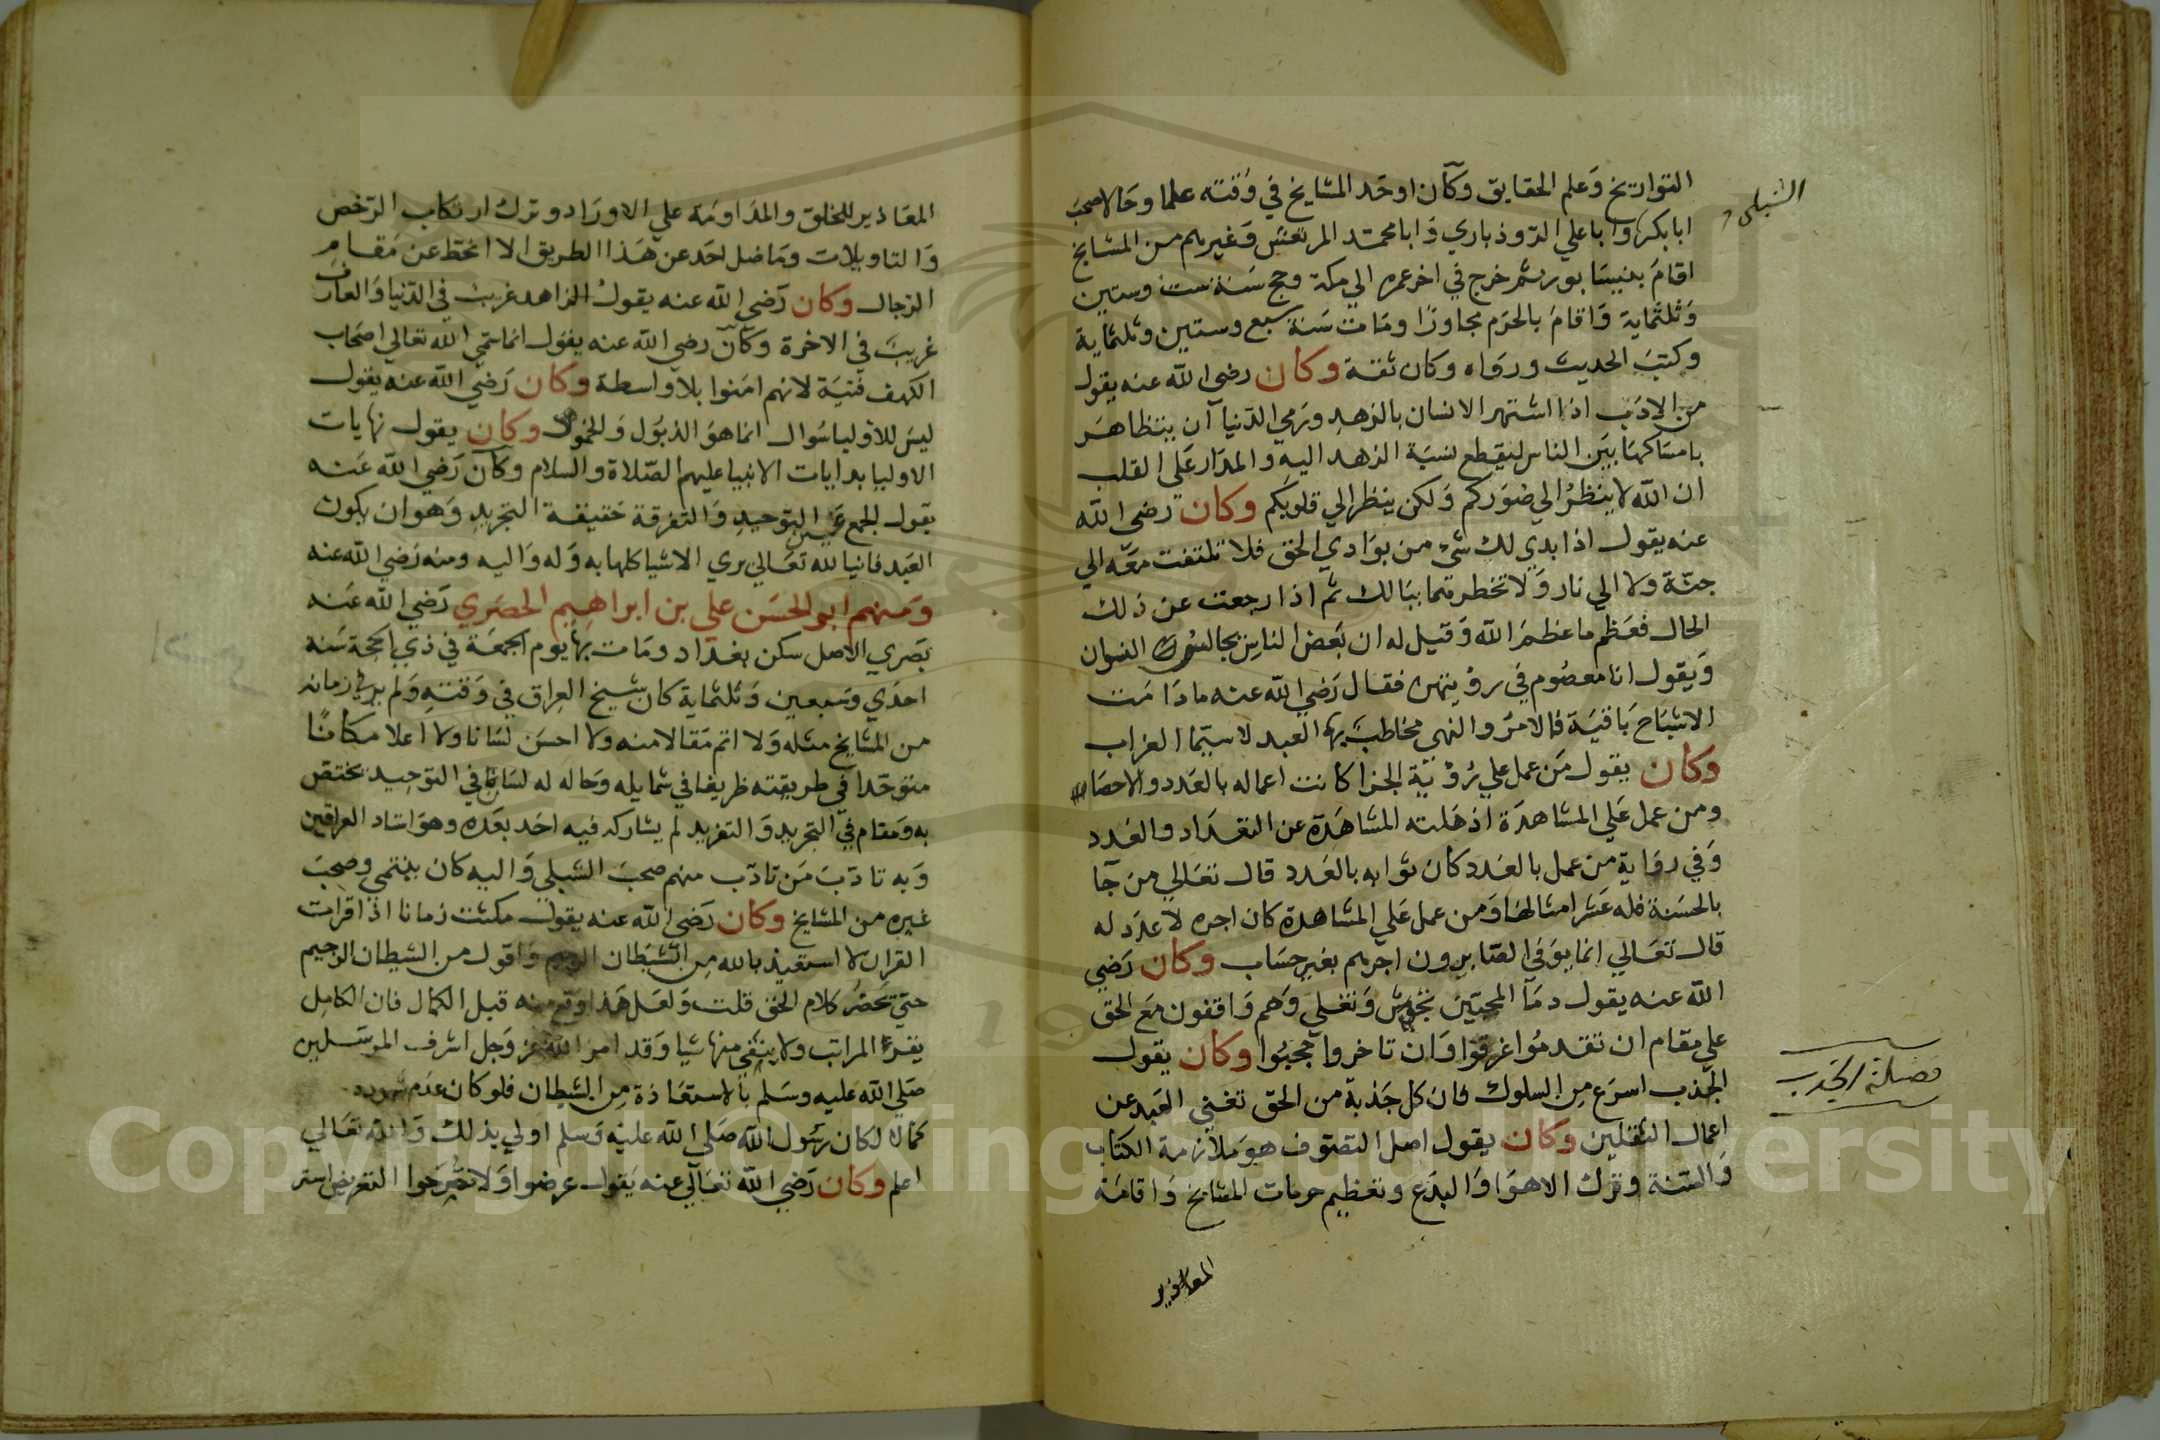 التواريخ وَعلم الحقايق وكان اوحَد المشايخ في وَقته علما وحَالا صحبَ
الشبلي
ابابكر وابا علي الرّوذباري وَابا محمّد المرتعش وَغيرهم من المشايخ
اقامَ بنيسَابور ثم خرج في اخر عمره الي مكة وحج سَنة ست وستين
وَثلثماية وَاقامَ بالحرَم مجاورًا ومَات سَنة سبع وستين وثلثماية
وكتبَ الحديث ورواه وكان ثقة وكان رضي الله عنه يقول
من الادَب اذا اشتهر الانسان بالزهد ورَمي الدّنيا آن يتظاهَر
بامسَاكها بيَن الناس لينقطع نسبَة الزهد اليه وَالمدَار عَلى القلب
ان الله لا ينظرُ الي صُوَركم وَلكن ينظر الي قلوبكم وكان رَضي الله
عنه يقول اذا بدي لك شئ من بوَادي الحق فلا تلتفت معَه الي
جنّة ولا الي نار وَلا تخطرهما ببَالك ثم اذا رجعت عن ذلك
الحال فعَظم ما عظمَ الله وَقيل له ان بَعض الناس يجالسُ النسوان
وَيقول انا معصُوم في رؤيتهن فقال رَضي الله عنه مادَامَت
الاشبَاح بَاقيَة فالامرُ والنهي مخاطبَ بهَا العبد لا سيّما العزاب
وكان يقول مَن عمل علي رُؤيَة الجزا كانت اعماله بالعَدد والاحصَا
ومن عمل عَلي المشاهدَة اَذهَلته المشَاهَدَة عن التعدَاد والعَدد
وَفي روَاية من عمل بالعَدد كان ثوابه بالعَدد قال تعَالي من جَآ
بالحسَنة فله عَشر امثالهَا وَمن عمل عَلي المشاهدة كان اجره لا عدَد له
قال تعَالي انما يوَفي الصّابرون اجرهم بغير حسَاب وكان رَضي
الله عنه يقول دمَآ المحبّين تجيش وَتغلي وَهم وَاقفون مَع الحق
علي مقام ان تقدمُوا غرقوا وَان تاخروا حُجبُوا وكان يقول
فضيلة الجذب
الجَذب اسرَع مِن السلوك فان كل جَذبة من الحق تغني العَبد عن
اعمال الثقلين وكان يقول اصل التصوّف هوَ ملازمة الكتَاب
وَالسّنة وَترك الاهوَا وَالبدَع وتعظيم حرمات المشايخ وَاقامَة
المعاذير
المعَاذير للخلق والمدَاومَة علي الاورَاد وترك ارتكاب الرّخص
وَالتاويلات ومَا ضل احَد عن هَذا الطريق الا انحَط عن مَقام
الرجال وكان رَضي الله عنه يقولُ الزاهد غريبٌ في الدّنيا وَالعارف
غريبَ في الاخرة وكان رضي الله عنه يقول انما سَمّي الله تعالي اصحَاب
الكهف فتيَة لانهم امَنوا بلا واسطة وكان رَضي الله عنه يقول
ليسَ للاوليا سُوال انما هوَ الذبُول وَالخمول وكان يقول نهايات
الاوليا بدايات الانبيا عليهم الصّلاة والسلام وكان رَضي الله عَنه
يقول الجمع عَين التوحيدِ وَالتفرقة حَقيقة التجَريدِ وَهو ان يكون
العَبد فانيا لله تعَالي يري الاشيا كلها به وَله وَاليه ومنه رَضي الله عنه
وَمنهم ابو الحسَن علي بن ابراهيم الحصَري رَضي الله عَنه
بَصَري الاصل سكن بغدَاد ومَات بهَا يوم الجمعَة في ذي الحجّة سَنة
احدَي وسَبعين وَثلثماية كان شيخ العِراق في وَقتهِ وَلم ير في زمانه
من المشايخ مثله وَلا اتم مَقالا منه ولا احسَن لسَانا ولا اعلا مكانًا
متوحّدا في طريقته ظريفا في شمايله وحَاله له لسَان في التوحيد يختص
به وَمقام في التجريد وَالتفريد لم يشاركه فيه احَد بَعَده وهوَ استاد العراقين
وَبه تادّبَ مَن تادّب منهم صحبَ الشبلي وَاليه كان ينتمي وصحبَ
غيره من المشايخ وكان رَضي الله عنه يقول مكثت زمانا اذا قرات
القران لا استعيذ بالله مِن الشيَطان الرجيم وَاقول من الشيطان الرجيم
حتي يَحضُر كلام الحق قلت وَلعَل هَذا وَقع منه قبل الكمال فان الكامِل
يقرأ المراتب ولا ينفي منها شيا وَقد امر الله عز وَجل اشرف المرسَلين
صَلي الله عليه وسَلم بالاستعَاذة مِن الشيطان فلو كان عدَم شهوده
كمالا لكان رَسُول الله صَلي الله عليه وَسلم اولي بذلك وَالله تعَالي
اعلم وكان رَضي الله تعَالي عنه يَقول عرضوا وَلا تصَرّحوا التعريض استر